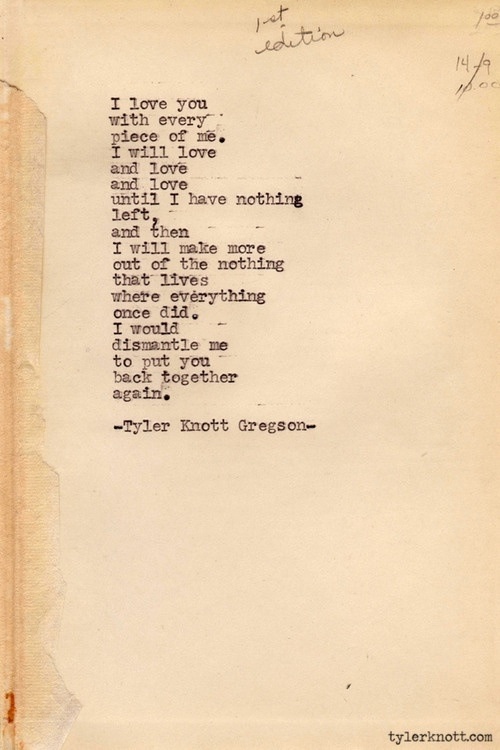 1st
edition
100
14/9
10.00
I love you
with every
piece of me.
I will love
and love
and love
until I have nothing
left,
and then
I will make more
out of the nothing
that lives
where everything
once did.
I would
dismantle me
to put you
back together
again.
-Tyler Knott Gregson-
tylerknott.com